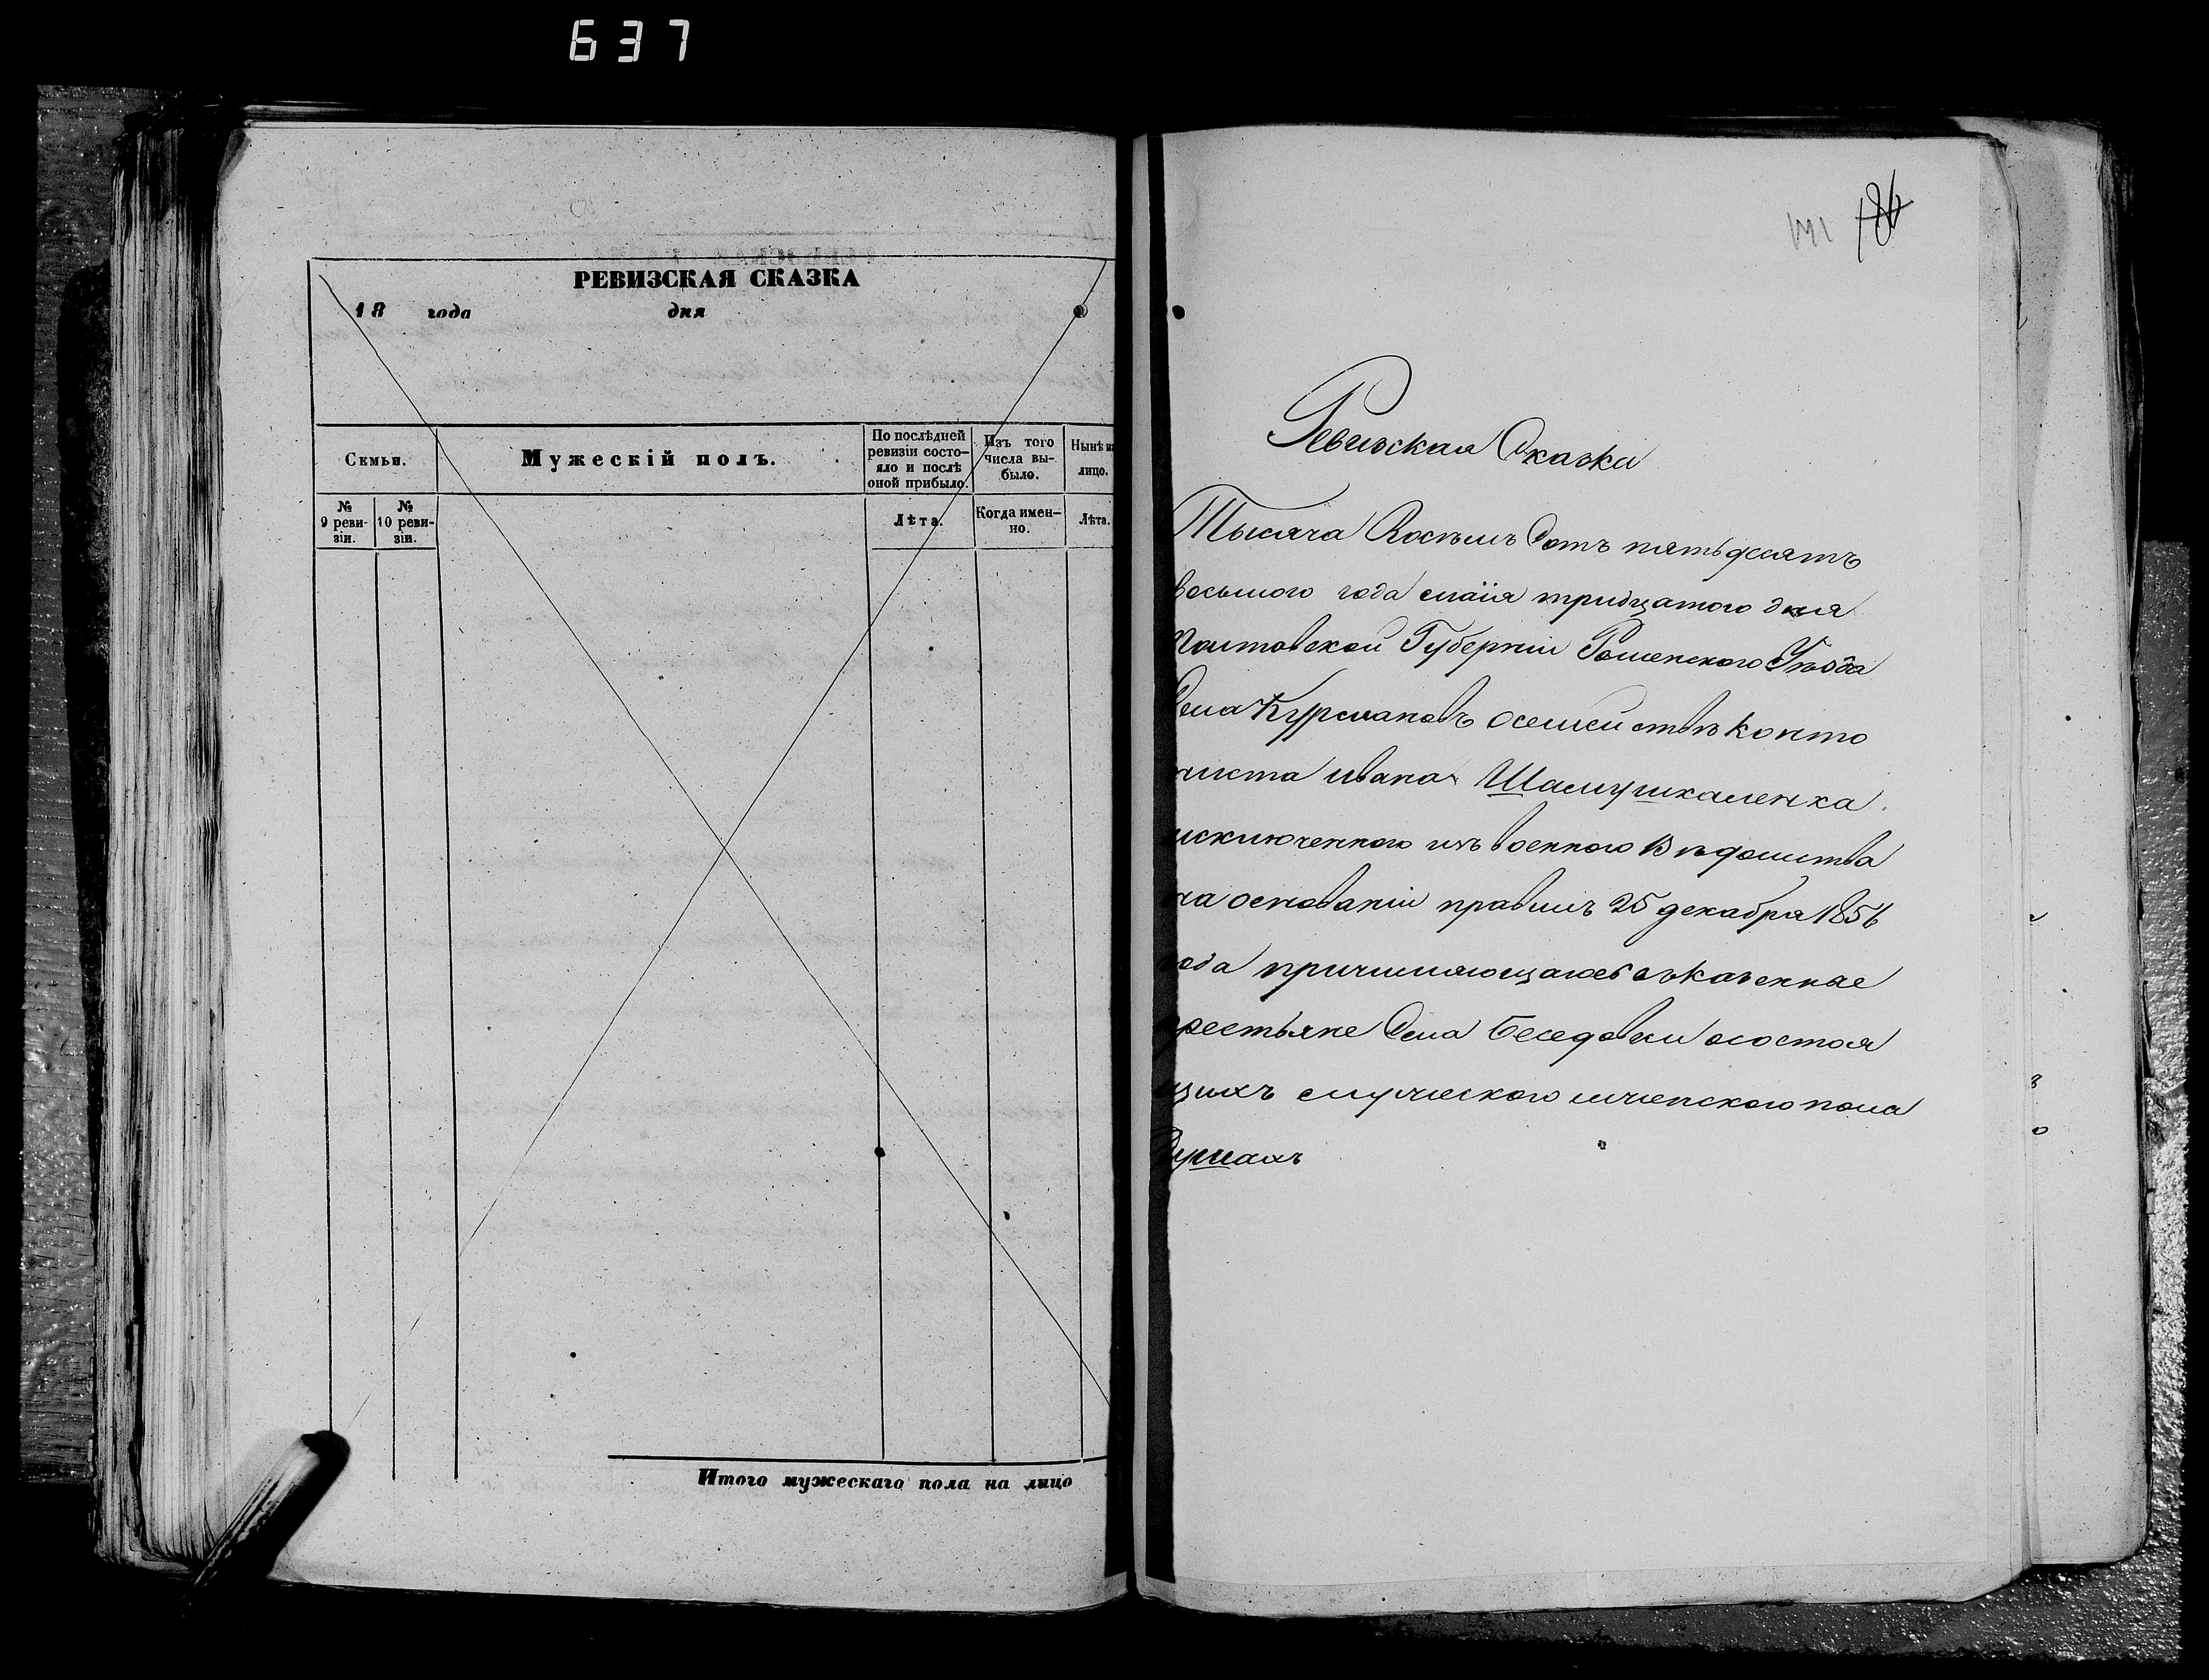 637
РЕВИЗСКАЯ СКАЗКА
18 года дня
Семьи.
Мужескій полъ.
По послѣдней ревизіи состо-
яло и послѣ оной прибыло.
Изъ того числа вы-
было.
Нынѣ на лицо.
№ 9 реви-
зіи.
№ 10 реви-
зіи.
Лѣта.
Когда имен-
но.
Лѣта.
Итого мужескаго пола на лицо
141 186
Ревизская Сказка
Тысяча Восемъ Сотъ пятьдесятъ
восьмого года маія тридцатого дня
Полтовской Губерніи Роменского Уѣзда
Села Курмановъ осемействѣ канто
ниста ивана Шамушкаленка
исключенного изъ военного Вѣдомства
на основаніи правилъ 25 декабря 1856
года причисляющагось въ казенные
крестьяне Села Беседовки осостоя
щихъ мужеского иженского пола
Душахъ